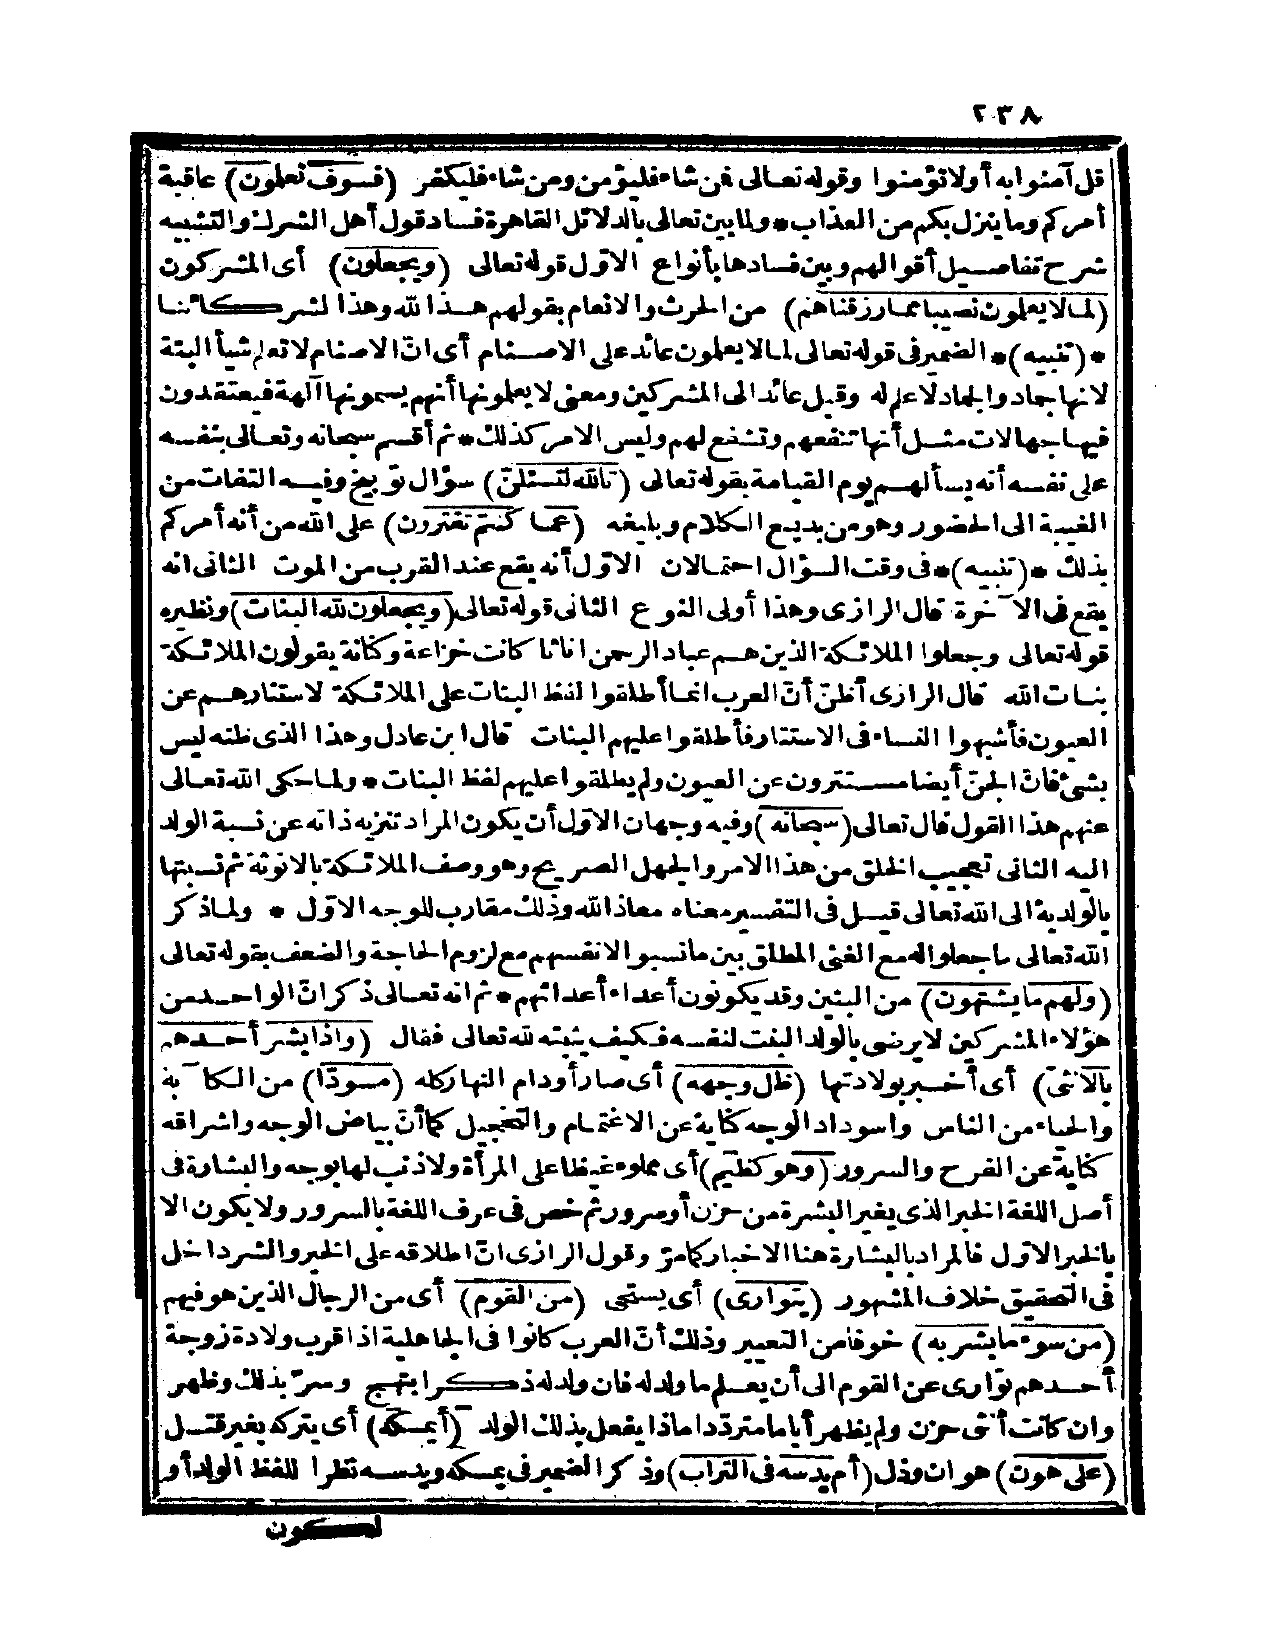 ٢٣٨
قل آمنوا به أولا تؤمنوا وقوله تعالى فمن شاء فليؤمن ومن شاء فليكفر (فسوف تعلمون) عاقبة
أمركم وما ينزل بكم من العذاب * ولما بين تعالى بالدلائل القاهرة فساد قول أهل الشرك والتشبيه
شرح تفاصيل أقوالهم وبين فسادها بأنواع الاوّل قوله تعالى (ويجعلون) أى المشركون
(لما لا يعلمون نصيبا مما رزقناهم) من الحرث والانعام بقولهم هذا لله وهذا لشركائنا
* (تنبيه) * الضمير فى قوله تعالى لما لا يعلمون عائد على الاصنام أى انّ الاصنام لا تعلم شيأ البتة
لانها جماد والجماد لا علم له وقيل عائد الى المشركين ومعنى لا يعلمونها أنهم يسمونها آلهة فيعتقدون
فيها جهالات مثل أنها تنفعهم وتشفع لهم وليس الامر كذلك * ثم أقسم سبحانه وتعالى بنفسه
على نفسه أنه يسألهم يوم القيامة بقوله تعالى (تالله لتسئلنّ) سؤال توبيخ وفيه التفات من
الغيبة الى الحضور وهو من بديع الكلام وبليغه (عما كنتم تفترون) على الله من أنه أمركم
بذلك * (تنبيه) * فى وقت السؤال احتمالان الاوّل أنه يقع عند القرب من الموت الثانى انه
يقع فى الآخرة قال الرازى وهذا أولى النوع الثانى قوله تعالى (ويجعلون لله البنات) ونظيره
قوله تعالى وجعلوا الملائكة الذين هم عباد الرحمن اناثا كانت خزاعة وكنانة يقولون الملائكة
بنات الله قال الرازى أظنّ أنّ العرب انما أطلقوا لفظ البنات على الملائكة لاستتارهم عن
العيون فأشبهوا النساء فى الاستتار فأطلقوا عليهم البنات قال ابن عادل وهذا الذى ظنه ليس
بشئ فانّ الجنّ أيضا مستترون عن العيون ولم يطلقوا عليهم لفظ البنات * ولما حكى الله تعالى
عنهم هذا القول قال تعالى (سبحانه) وفيه وجهان الاوّل أن يكون المراد تنزيه ذاته عن نسبة الولد
اليه الثانى تعجيب الخلق من هذا الامر والجهل الصريح وهو وصف الملائكة بالانوثة ثم نسبتها
بالولدية الى الله تعالى قيل فى التفسير معناه معاذ الله وذلك مقارب للوجه الاوّل * ولما ذكر
الله تعالى ما جعلوا له مع الغنى المطلق بين ما نسبوا لانفسهم مع لزوم الحاجة والضعف بقوله تعالى
(ولهم ما يشتهون) من البنين وقد يكونون أعداء أعدائهم * ثم انه تعالى ذكر انّ الواحد من
هؤلاء المشركين لا يرضى بالولد البنت لنفسه فكيف يثبته لله تعالى فقال (واذا بشر أحدهم
بالانثى) أى أخبر بولادتها (ظل وجهه) أى صار أو دام النهار كله (مسودّا) من الكآبة
والحياء من الناس واسوداد الوجه كناية عن الاغتمام والتخجيل كما أنّ بياض الوجه واشراقه
كناية عن الفرح والسرور (وهو كظيم) أى مملوء غيظا على المرأة ولا ذنب لها بوجه والبشارة فى
أصل اللغة الخبر الذى يغير البشرة من حزن أو سرور ثم خص فى عرف اللغة بالسرور ولا يكون الا
بالخبر الاوّل فالمراد بالبشارة هنا الاخبار كما مرّ وقول الرازى انّ اطلاقه على الخير والشر داخل
فى التحقيق خلاف المشهور (يتوارى) أى يستحى (من القوم) أى من الرجال الذين هو فيهم
(من سوء ما بشر به) خوفا من التعيير وذلك أنّ العرب كانوا فى الجاهلية اذا قرب ولادة زوجة
أحدهم توارى عن القوم الى أن يعلم ما ولد له فان ولد له ذكر ابتهج وسرّ بذلك وظهر
وان كانت أنثى حزن ولم يظهر أياما مترددا ماذا يفعل بذلك الولد (أيمسكه) أى يتركه بغير قتل
(على هون) هوان وذل (أم يدسه فى التراب) وذكر الضمير فى يمسكه ويدسه نظرا للفظ الولد أو
لكون